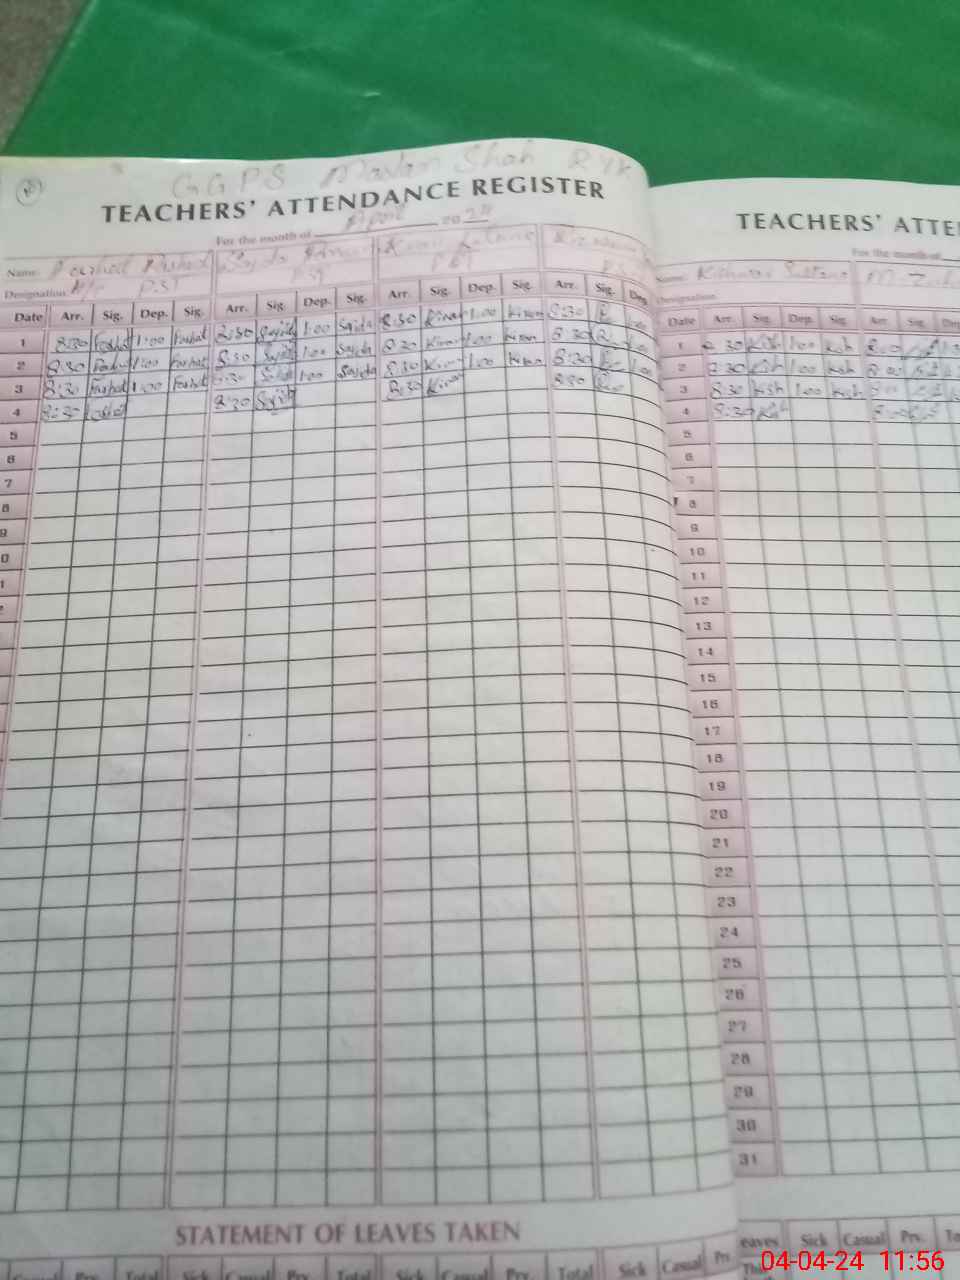 G G P S Mastan Shah R Y K
TEACHERS' ATTENDANCE REGISTER
For the month of April 2024
Name: Farhat Sajida Kiran
Designation: PST PST PST
Date Arr. Sig. Dep. Sig. Arr. Sig. Dep. Sig. Arr. Sig. Dep. Sig. Arr. Sig. Dep.
1 8:30 Farhat 1:00 Farhat 8:30 Sajida 1:00 Sajida 8:30 Kiran 1:00 Kiran 8:30
2 8:30 Farhat 1:00 Farhat 8:30 Sajida 1:00 Sajida 8:30 Kiran 1:00 Kiran 8:30
3 8:30 Farhat 1:00 Farhat 8:30 Sajida 1:00 Sajida 8:30 Kiran 1:00 Kiran 8:30 1:00
4 8:30 Farhat 8:30 Sajida 8:30 Kiran 8:30
5
6
7
8
9
0
1
2
STATEMENT OF LEAVES TAKEN
Casual Prv. Total Sick Casual Prv. Total Sick Casual Prv.
TEACHERS' ATTE
For the month of
Name: Kishwar Sultana
Designation:
Date Arr. Sig. Dep. Sig. Arr. Sig. Dep
1 8:30 Kish 1:00 Kish 8:00
2 8:30 Kish 1:00 Kish 8:00
3 8:30 Kish 1:00 Kish
4 8:30 Kish 8:00
5
6
7
8
9
10
11
12
13
14
15
16
17
18
19
20
21
22
23
24
25
26
27
28
29
30
31
eaves Sick Casual Prv. To
04-04-24 11:56